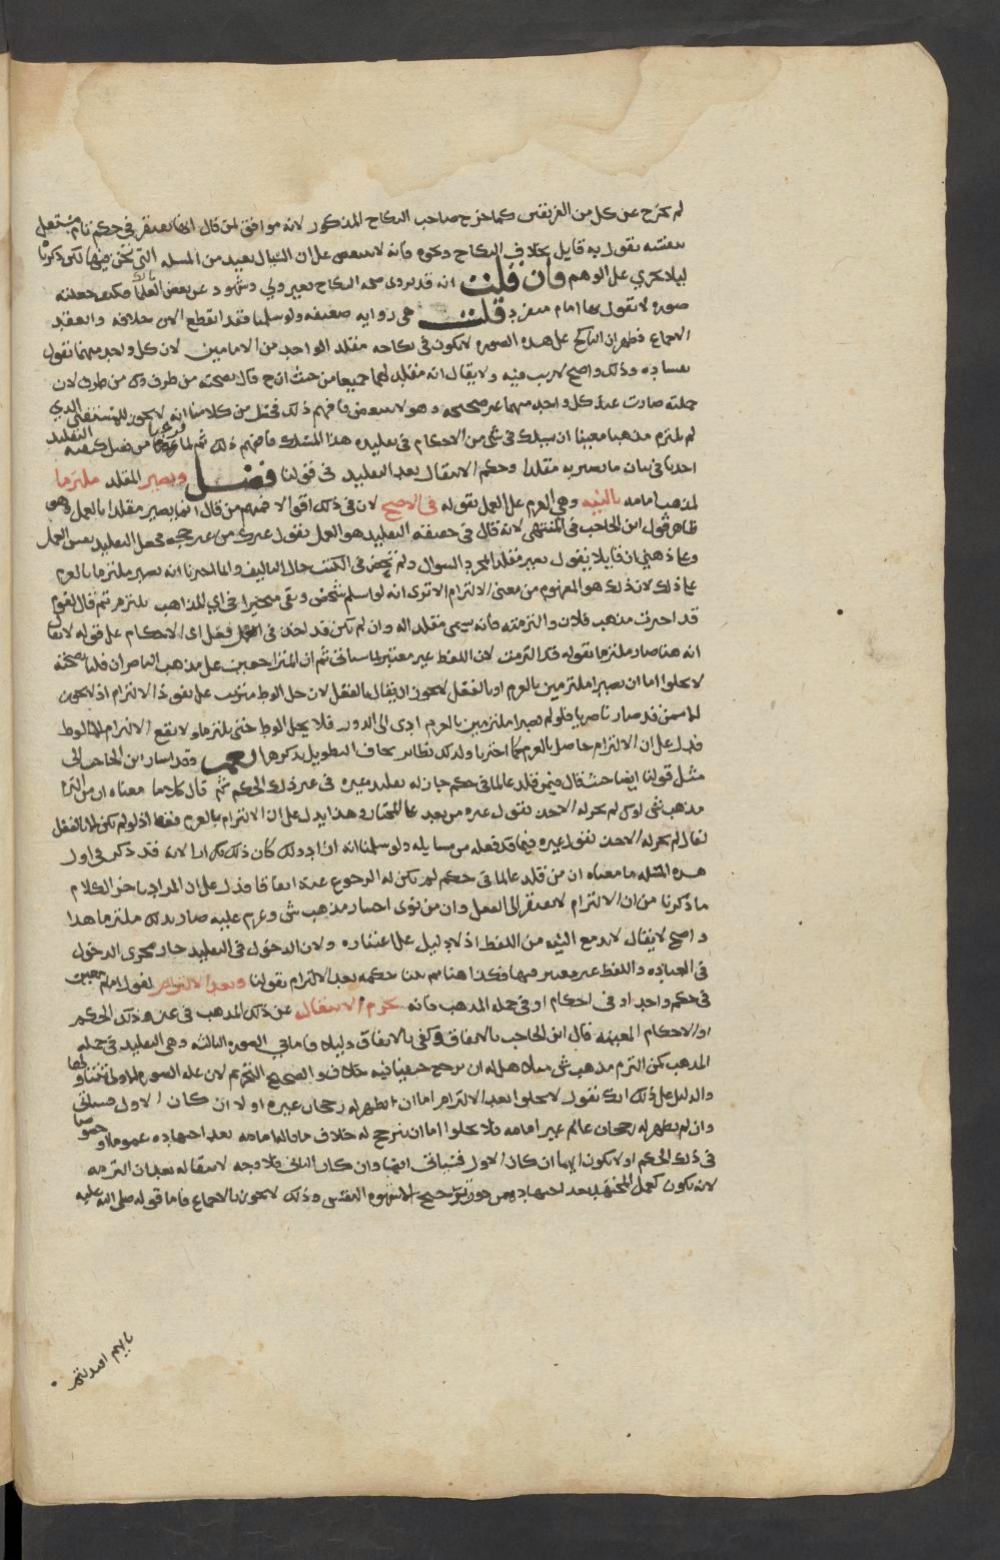 لم يخرج عن كل من الفريقين كما خرج صاحب النكاح المذكور لانه موافق لمن قال انها تفتقر في حكم تام مستقل
بنفسه يقول به قايل بخلاف النكاح ونحوه فانه لا ينقص على ان المثال بعيد من المسله التي نحن فيها لكن ذكرناه
ليلا يجري على الوهم فان قلت انه قد يروى صحة النكاح بغير ولي وشهود عن بعض العلما فكيف جعلته
صوره لا يقول بها امام منفرد قلت هي روايه ضعيفه ولو سلمنا فقد انقطع الان خلافه وانعقد
الاجماع فظهر ان الناكح على هذه الصوره لا يكون في نكاحه مقلد الواحد من الامامين لان كل واحد منهما يقول
بفساده وذلك واضح لا ريب فيه ولا يقال انه مقلد لهما جميعا من حيث ان ح قال بصحته من طرف وك من طرف لان
جملته صارت عند كل واحد منهما غير صحيحه وهو لا يتبعض فافهم ذلك فحصل من كلامنا انه لا يجوز للمستفتي الذي
لم يلتزم مذهبا معينا ان يسلك في شي من الاحكام في تقليده هذا المسلك فافهم ذلك ثم لما فرغنا من فصل كيفيه التقليد
اخذنا في بيان ما يصير به مقلدا وحكم الانتقال بعد التقليد في قولنا فصل ويصير المقلد ملتزما
لمذهب امامه بالنيه وهي العزم على العمل بقوله في الاصح لان في ذلك اقوالا فمنهم من قال انما يصير مقلدا بالعمل وهو
ظاهر قول ابن الحاجب في المنتهى لانه قال في حقيقه التقليد هو العمل بقول غيرك من غير حجه فجعل التقليد نفس العمل
وفي ذهني ان قايلا يقول يصير مقلدا بمجرد السوال ولم تحضرني الكتب حال التاليف وانما اخترنا انه يصير ملتزما بالعزم
على ذلك لان ذلك هو المفهوم من معنى الالتزام الا ترى انه لو اسلم شخص وبقي متحيرا في اي المذاهب يلتزم ثم قال لقوم
قد اخترت مذهب فلان والتزمته فانه يسمى مقلدا له وان لم يكن قد اخذ في العمل اي الاحكام على قوله لا يقال
انه هنا صار ملتزما بقوله قد التزمت لان اللفظ غير معتبر لما سياتي ثم ان المتزاوجين على مذهب الناصر ان قلنا بصحته
لا يخلوا اما ان يصيرا ملتزمين بالعزم او بالفعل لا يجوز ان يقال بالفعل لان حل الوط مترتب على تقدم الالتزام اذ لا يجوز
الا ممن قد صار ناصريا فلو لم يصيرا ملتزمين بالعزم ادى الى الدور فلا يحل الوط حتى يلتزما ولا يقع الالتزام الا بالوط
فدل على ان الالتزام حاصل بالعزم كما اخترنا ولذلك نظاير يخاف التطويل بذكرها نعم وقد اشار ابن الحاجب الى
مثل قولنا ايضا حيث قال فيمن قلد عالما في حكم جاز له تقليد غيره في غير ذلك الحكم ثم قال كلاما معناه ان من التزم
مذهب شي او ك لم يجز له الاخذ بقول غيره من بعد على المختار وهذا يدل على ان الالتزام بالعزم فقط اذ لو لم يكن الا بالفعل
لقال لم يجز له الاخذ بقول غيره فيما قد فعله من مسايله ولو سلمنا انه اراد ذلك كان ذلك تكرارا لانه قد ذكر في اول
هذه المسئله ما معناه ان من قلد عالما في حكم لم يكن له الرجوع عنه اتفاقا فدل على ان المراد باخر الكلام
ما ذكرنا من ان الالتزام لا يفتقر الى الفعل وان من نوى اختيار مذهب شي وعزم عليه صار بذلك ملتزما هذا
واضح لا يقال لا بد مع النيه من اللفظ اذ لا دليل على اعتباره ولان الدخول في التقليد جار مجرى الدخول
في العباده واللفظ غير معتبر فيها فكذا هنا ثم بينا حكمه بعد الالتزام بقولنا وبعد الالتزام لقول امام معين
في حكم واحد او في احكام او في جمله المذهب فانه يحرم الانتقال عن ذلك المذهب في عين ذلك الحكم
او الاحكام المعينه قال ابن الحاجب بالاتفاق وكفى بالاتفاق دليلا فاما في الصوره الثالثه وهي التقليد في جمله
المذهب كمن التزم مذهب شي مثلا هل له ان يرجع حنفيا فيه خلاف والصحيح التحريم لان علة الصوره الاولى تتناولها
والدليل على ذلك انك تقول لا يخلوا بعد الالتزام اما ان يظهر له رجحان غيره او لا ان كان الاول فسياتي
وان لم يظهر له رجحان عالم غير امامه فلا يخلوا اما ان يترجح له خلاف ما قاله امامه بعد اجتهاده عموما او خصوصا
في ذلك الحكم او لا يكون الا اما ان كان الاول فسياتي ايضا وان كان الثاني فلا وجه لانتقاله بعد ان التزمه
لانه يكون كعمل المجتهد بعد اجتهاده بمن دون ترجيح الا لشهوة النفس وذلك لا يجوز بالاجماع فاما قوله صلى الله عليه
بايهم اقتديتم